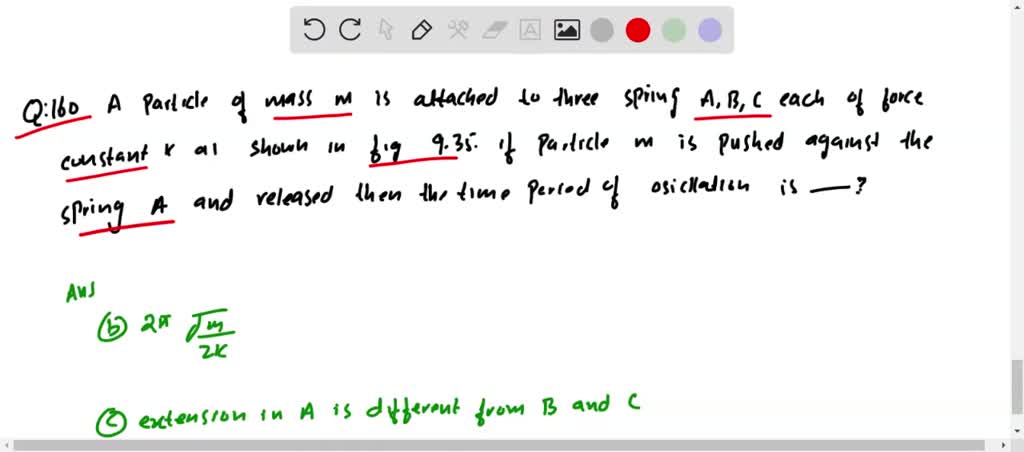 Q:160 A Particle of mass m is attached to three spring A, B, C each of force
constant K as shown in fig 9.35. if Particle m is pushed against the
spring A and released then the time Period of osicllation is — ?
Ans
(b) 2π √m/2K
(c) extension in A is different from B and C